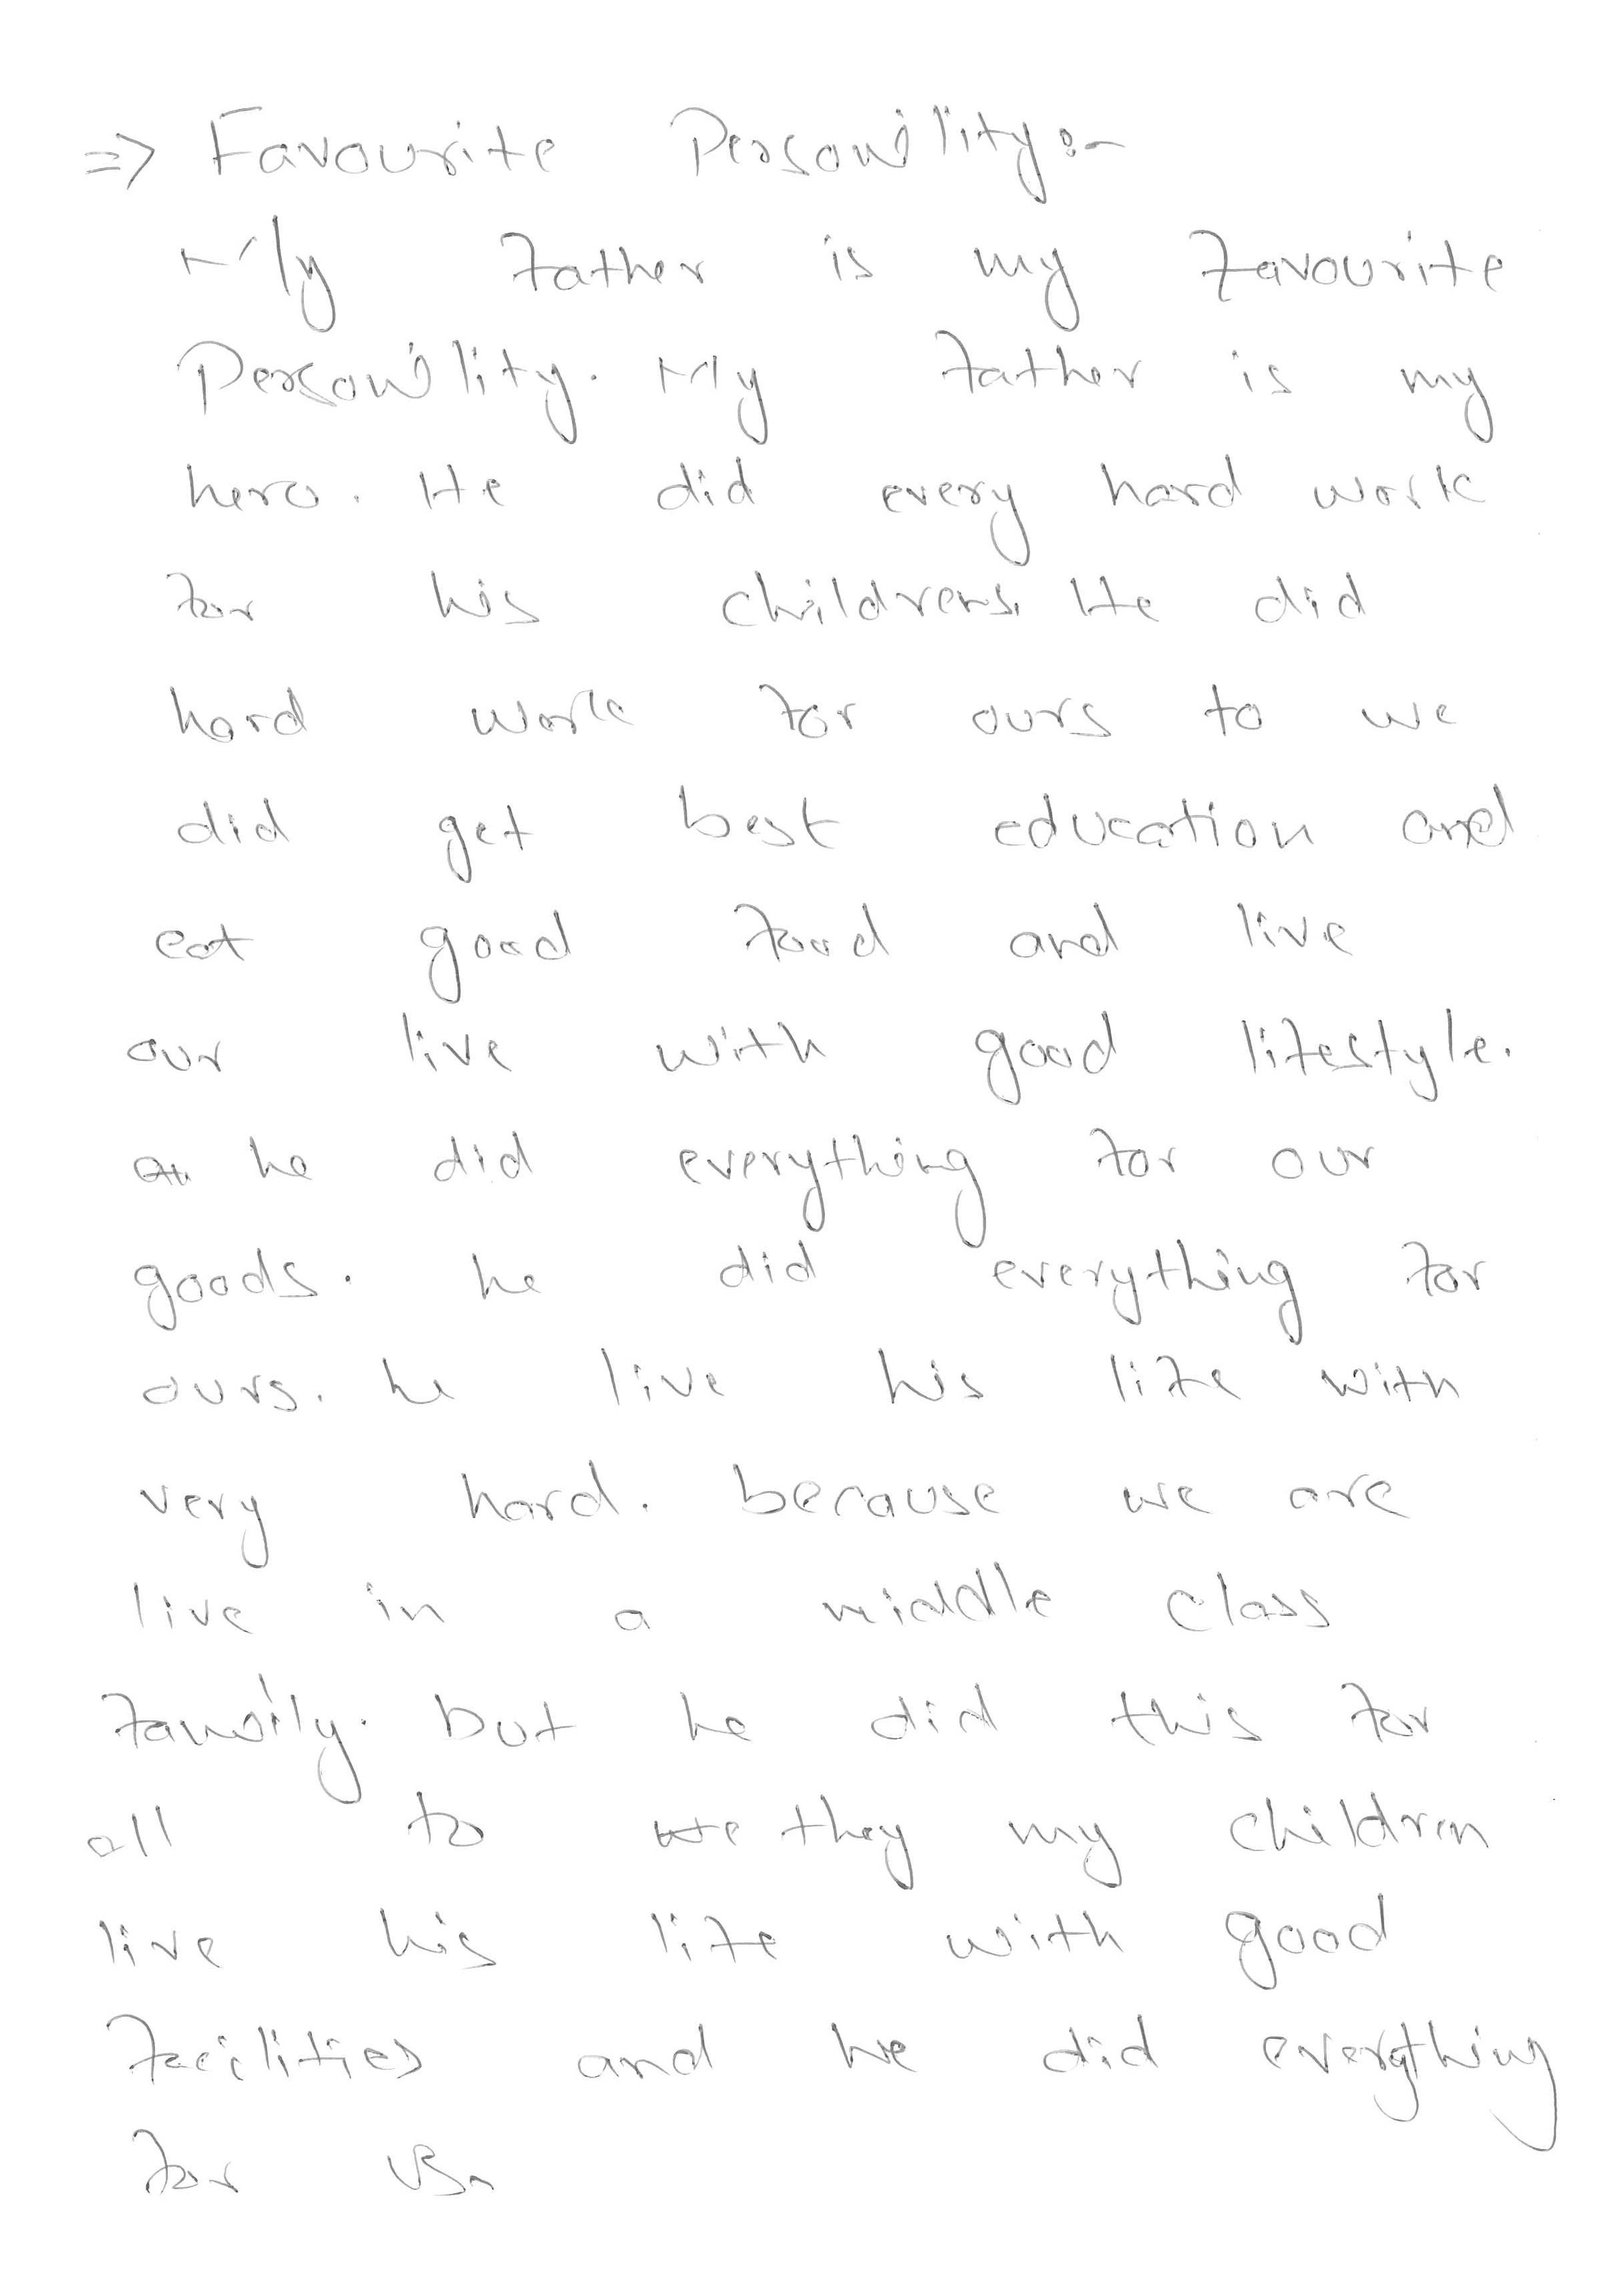 => Favourite Personility:-
My father is my favourite
Personility. My father is my
hero. He did every hard work
for his childrens. He did
hard work for ours to we
did get best education and
eat good food and live
our live with good lifestyle.
he did everything for our
goods. he did everything for
ours. he live his life with
very hard. because we are
live in a middle class
family. but he did this for
all to we they my children
live his life with good
facilities and he did everything
for us.